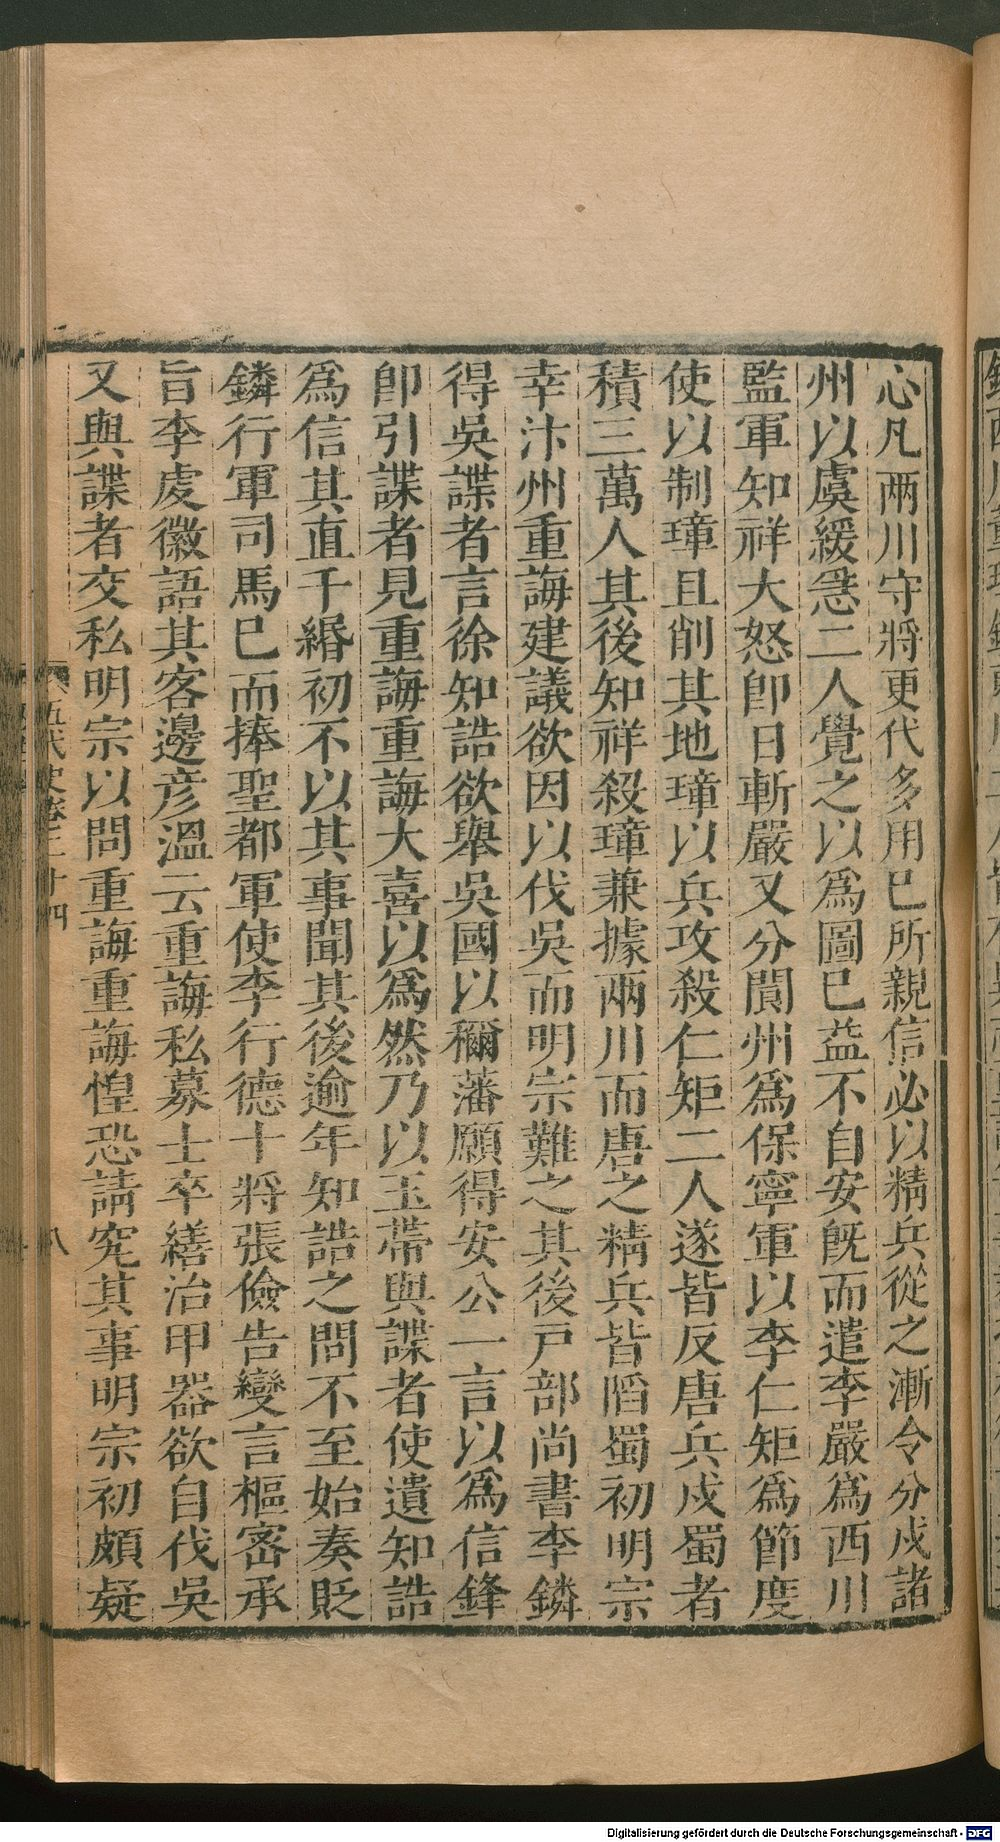 心凡兩川守將更代多用已所親信必以精兵從之漸令分戍諸
州以虞緩急二人覺之以爲圖已益不自安旣而遣李嚴爲西川
監軍知祥大怒卽日斬嚴又分閬州爲保寧軍以李仁矩爲節度
使以制璋且削其地璋以兵攻殺仁矩二人遂皆反唐兵戍蜀者
積三萬人其後知祥殺璋兼據兩川而唐之精兵皆陷蜀初明宗
幸汴州重誨建議欲因以伐吳而明宗難之其後戸部尚書李鏻
得吳諜者言徐知誥欲舉吳國以稱藩願得安公一言以爲信鏻
卽引諜者見重誨重誨大喜以爲然乃以玉帶與諜者使遺知誥
爲信其直千緡初不以其事聞其後逾年知誥之問不至始奏貶
鏻行軍司馬已而捧聖都軍使李行德十將張儉告變言樞密承
旨李虔徽語其客邊彦溫云重誨私募士卒繕治甲器欲自伐吳
又與諜者交私明宗以問重誨重誨惶恐請究其事明宗初頗疑
五代史卷二十四
八
Digitalisierung gefördert durch die Deutsche Forschungsgemeinschaft - DFG